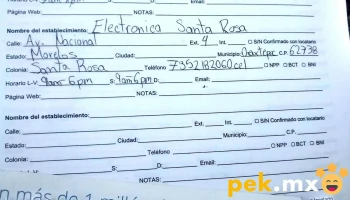 Página Web: NOTAS:
Nombre del establecimiento: Electronica Santa Rosa
Calle: Av. Nacional Ext. 4 Int. S/N Confirmado con locatario
Estado: Morelos Municipio: Oaxtepec C.P. 62738
Colonia: Santa Rosa Teléfono 7352182060cel NPP BCT BNI
Horario L-V: 9am-6pm S: 9am6pm D: Email:
Página Web: NOTAS:
Nombre del establecimiento:
Calle: Ext. Int. S/N Confirmado con locatario
Estado: Ciudad: Municipio: C.P.
Colonia: Teléfono NPP BCT BNI
S: D: Email:
NOTAS:
pek.mx